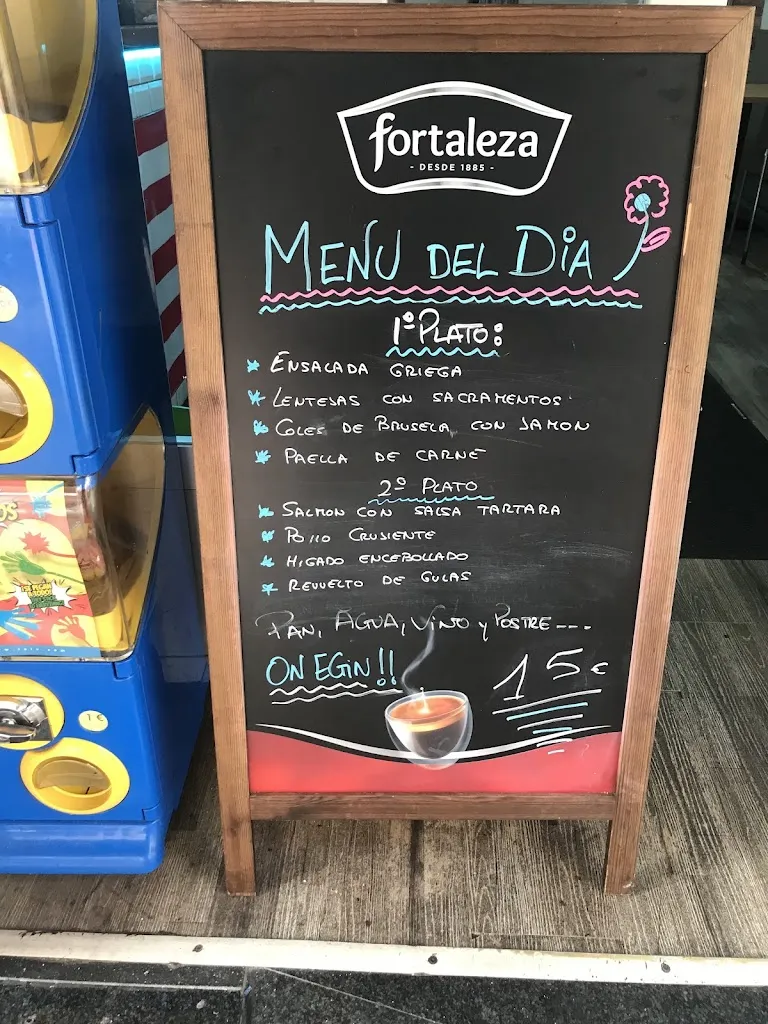 fortaleza
- DESDE 1885 -
MENU DEL DiA
1º PLATO:
* ENSALADA GRIEGA
* LENTEJAS CON SACRAMENTOS
* COLES DE BRUSELA CON JAMON
* PAELLA DE CARNE
2º PLATO
* SALMON CON SALSA TARTARA
* POLLO CRUSIENTE
* HIGADO ENCEBOLLADO
* REVUELTO DE GULAS
PAN, AGUA, ViNO y POSTRE---
ON EGiN!!
15€
1€